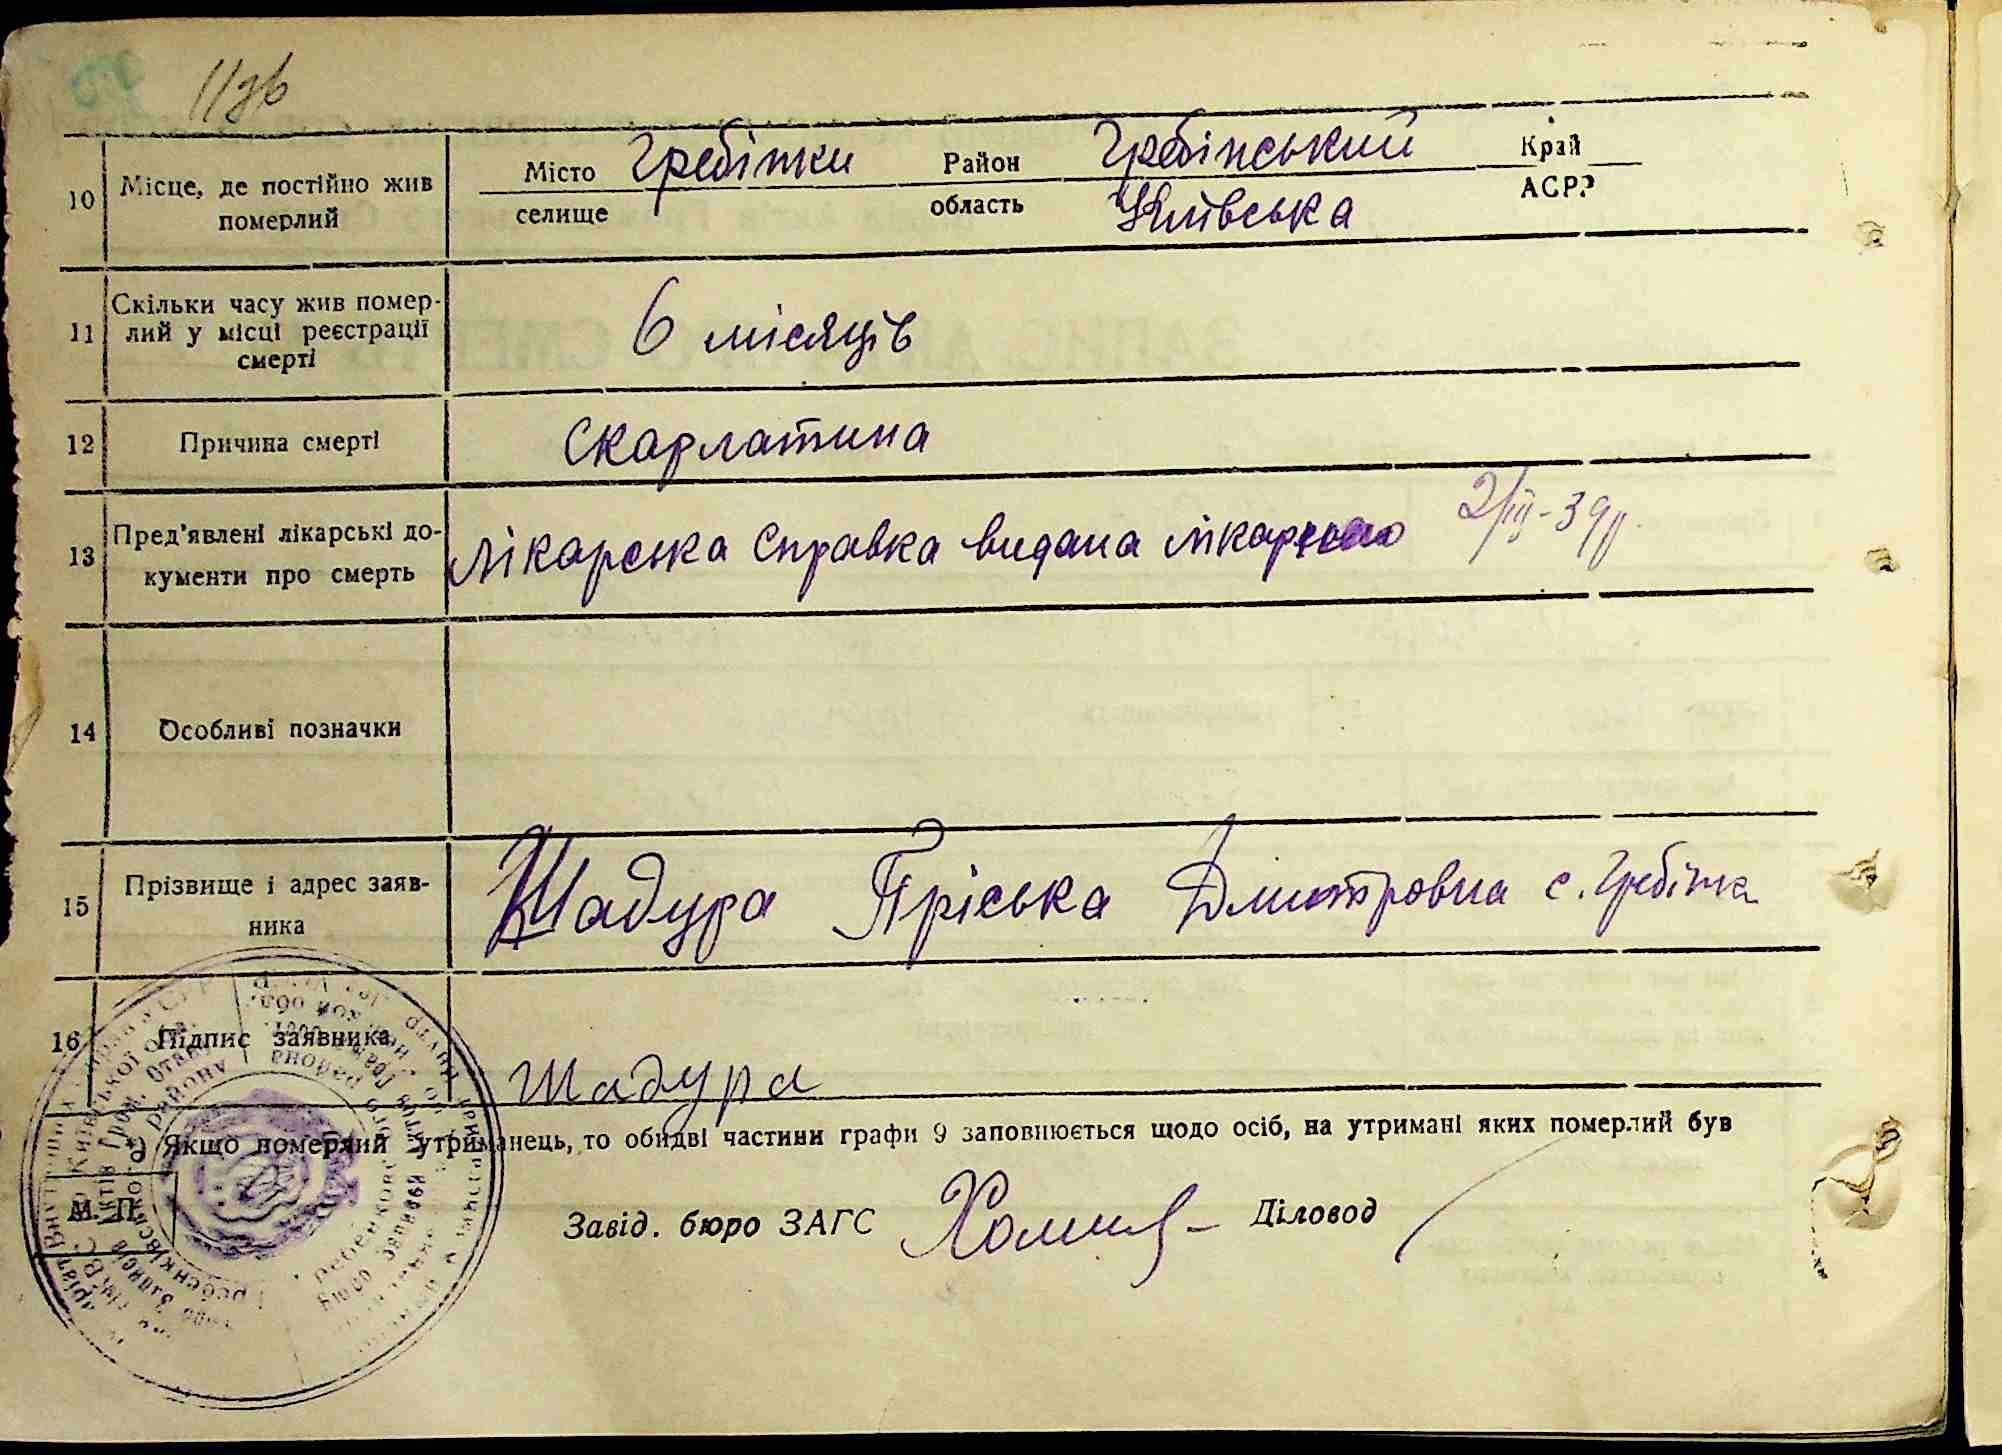 11зв
10 Місце, де постійно жив померлий
Місто Гребінки Район Гребінський Край
селище область Київська АСРР
11 Скільки часу жив помер-
лий у місці реєстрації
смерті
6 місяців
12 Причина смерті Скарлатина
13 Пред'явлені лікарські до-
кументи про смерть
Лікарська справка видана лікарнею 2/III-39р.
14 Особливі позначки
15 Прізвище і адрес заяв-
ника
Шадура Пріська Дмитровна с. Гребінка
16 Підпис заявника
Шадура
*) Якщо померлий утриманець, то обидві частини графи 9 заповнюється щодо осіб, на утримані яких померлий був
М. П.
Завід. бюро ЗАГС Діловод